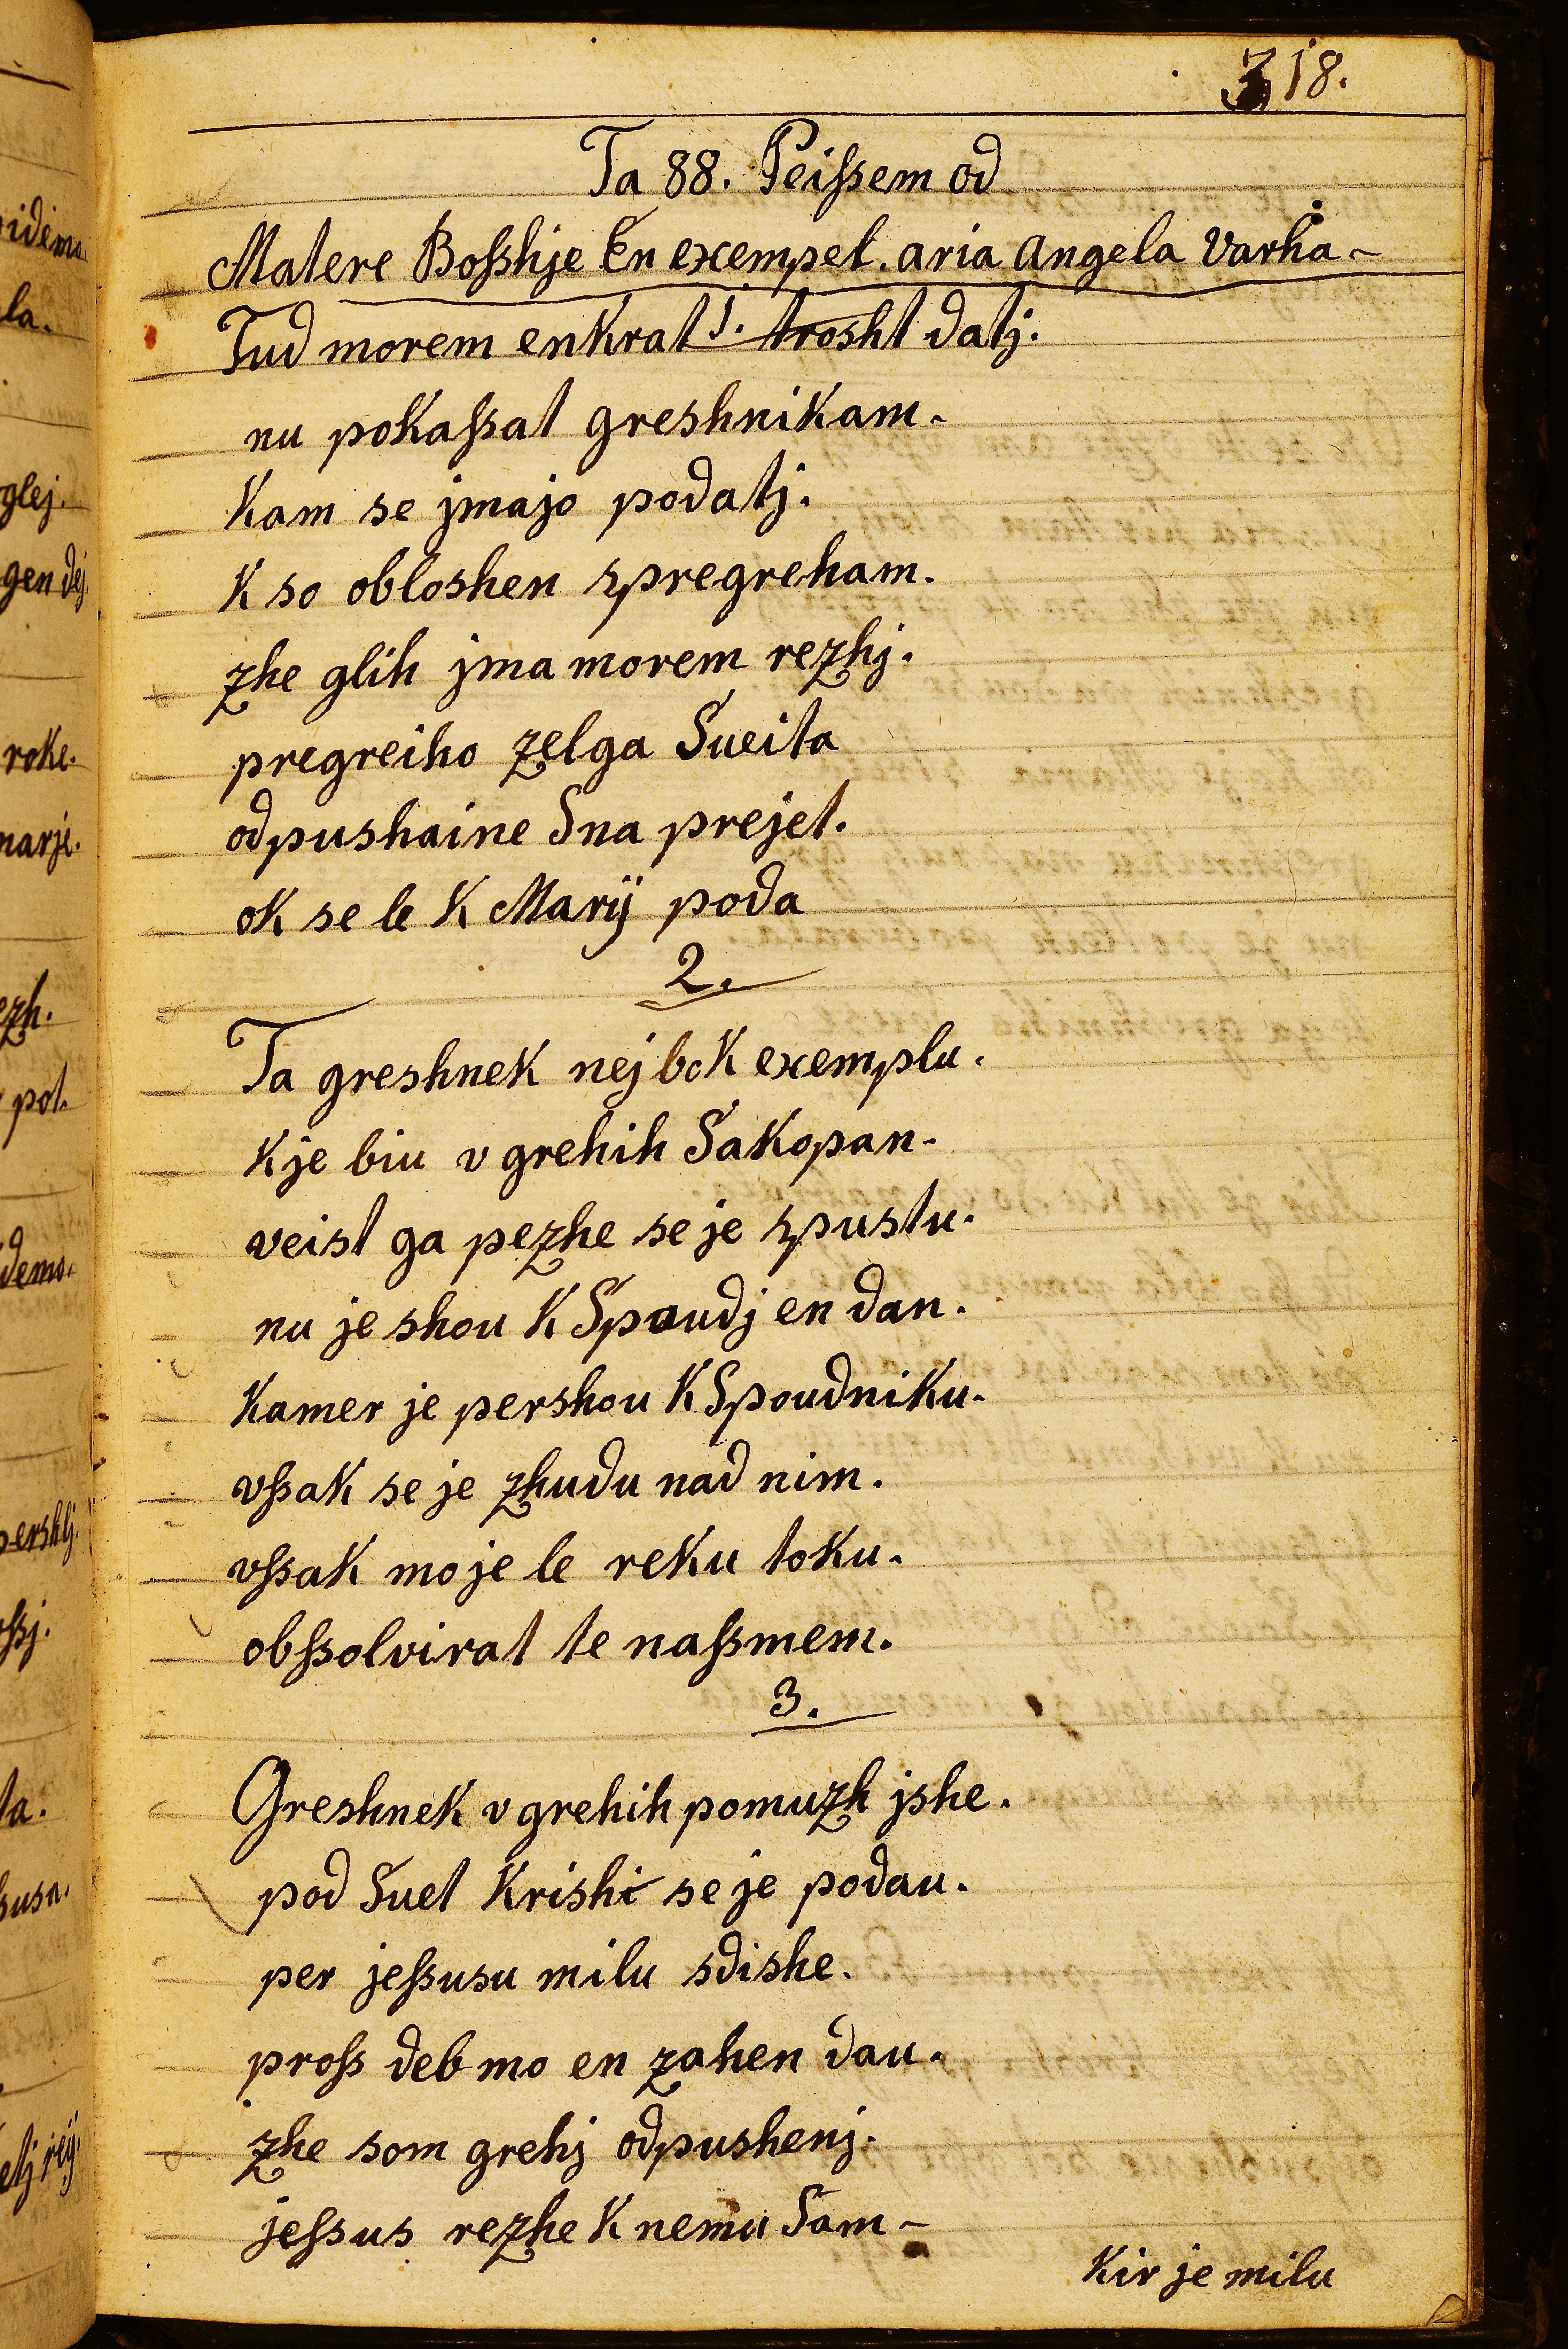 318.
Ta 88. Peißem od
Matere Boßhje En exempel. aria Angela Varha-
1.
Tud morem enkrat trosht datj.
nu pokaßat greshnikam.
Kam se jmajo podatj.
K so obloshen spregreham.
zhe glih jma morem rezhj.
pregreiho zelga Sueita
odpushaine Sna prejet.
ok se le K Marij poda
2.
Ta greshnek nej bok exemplu.
K je biu v grehih Sakopan-
veist ga pezhe se je spustu.
nu je shou K Spaudj en dan.
Kamer je pershou K Spoudniku.
vßak se je zhudu nad nim.
vßak mo je le reku toku.
obßolvirat te naßmem.
3.
Greshnek v grehih pomuzh jshe.
pod Suet Krishi se je podau.
per jeßusu milu sdishe.
proß deb mo en zahen dau.
zhe som grehj odpushenj.
jeßus rezhe K nemu Sam-
Kir je milu
idemo.
la.
glej.
gen dej.
roke.
marje.
ezh.
pot.
demo.
pershlj.
oßj.
ta.
ßusa.